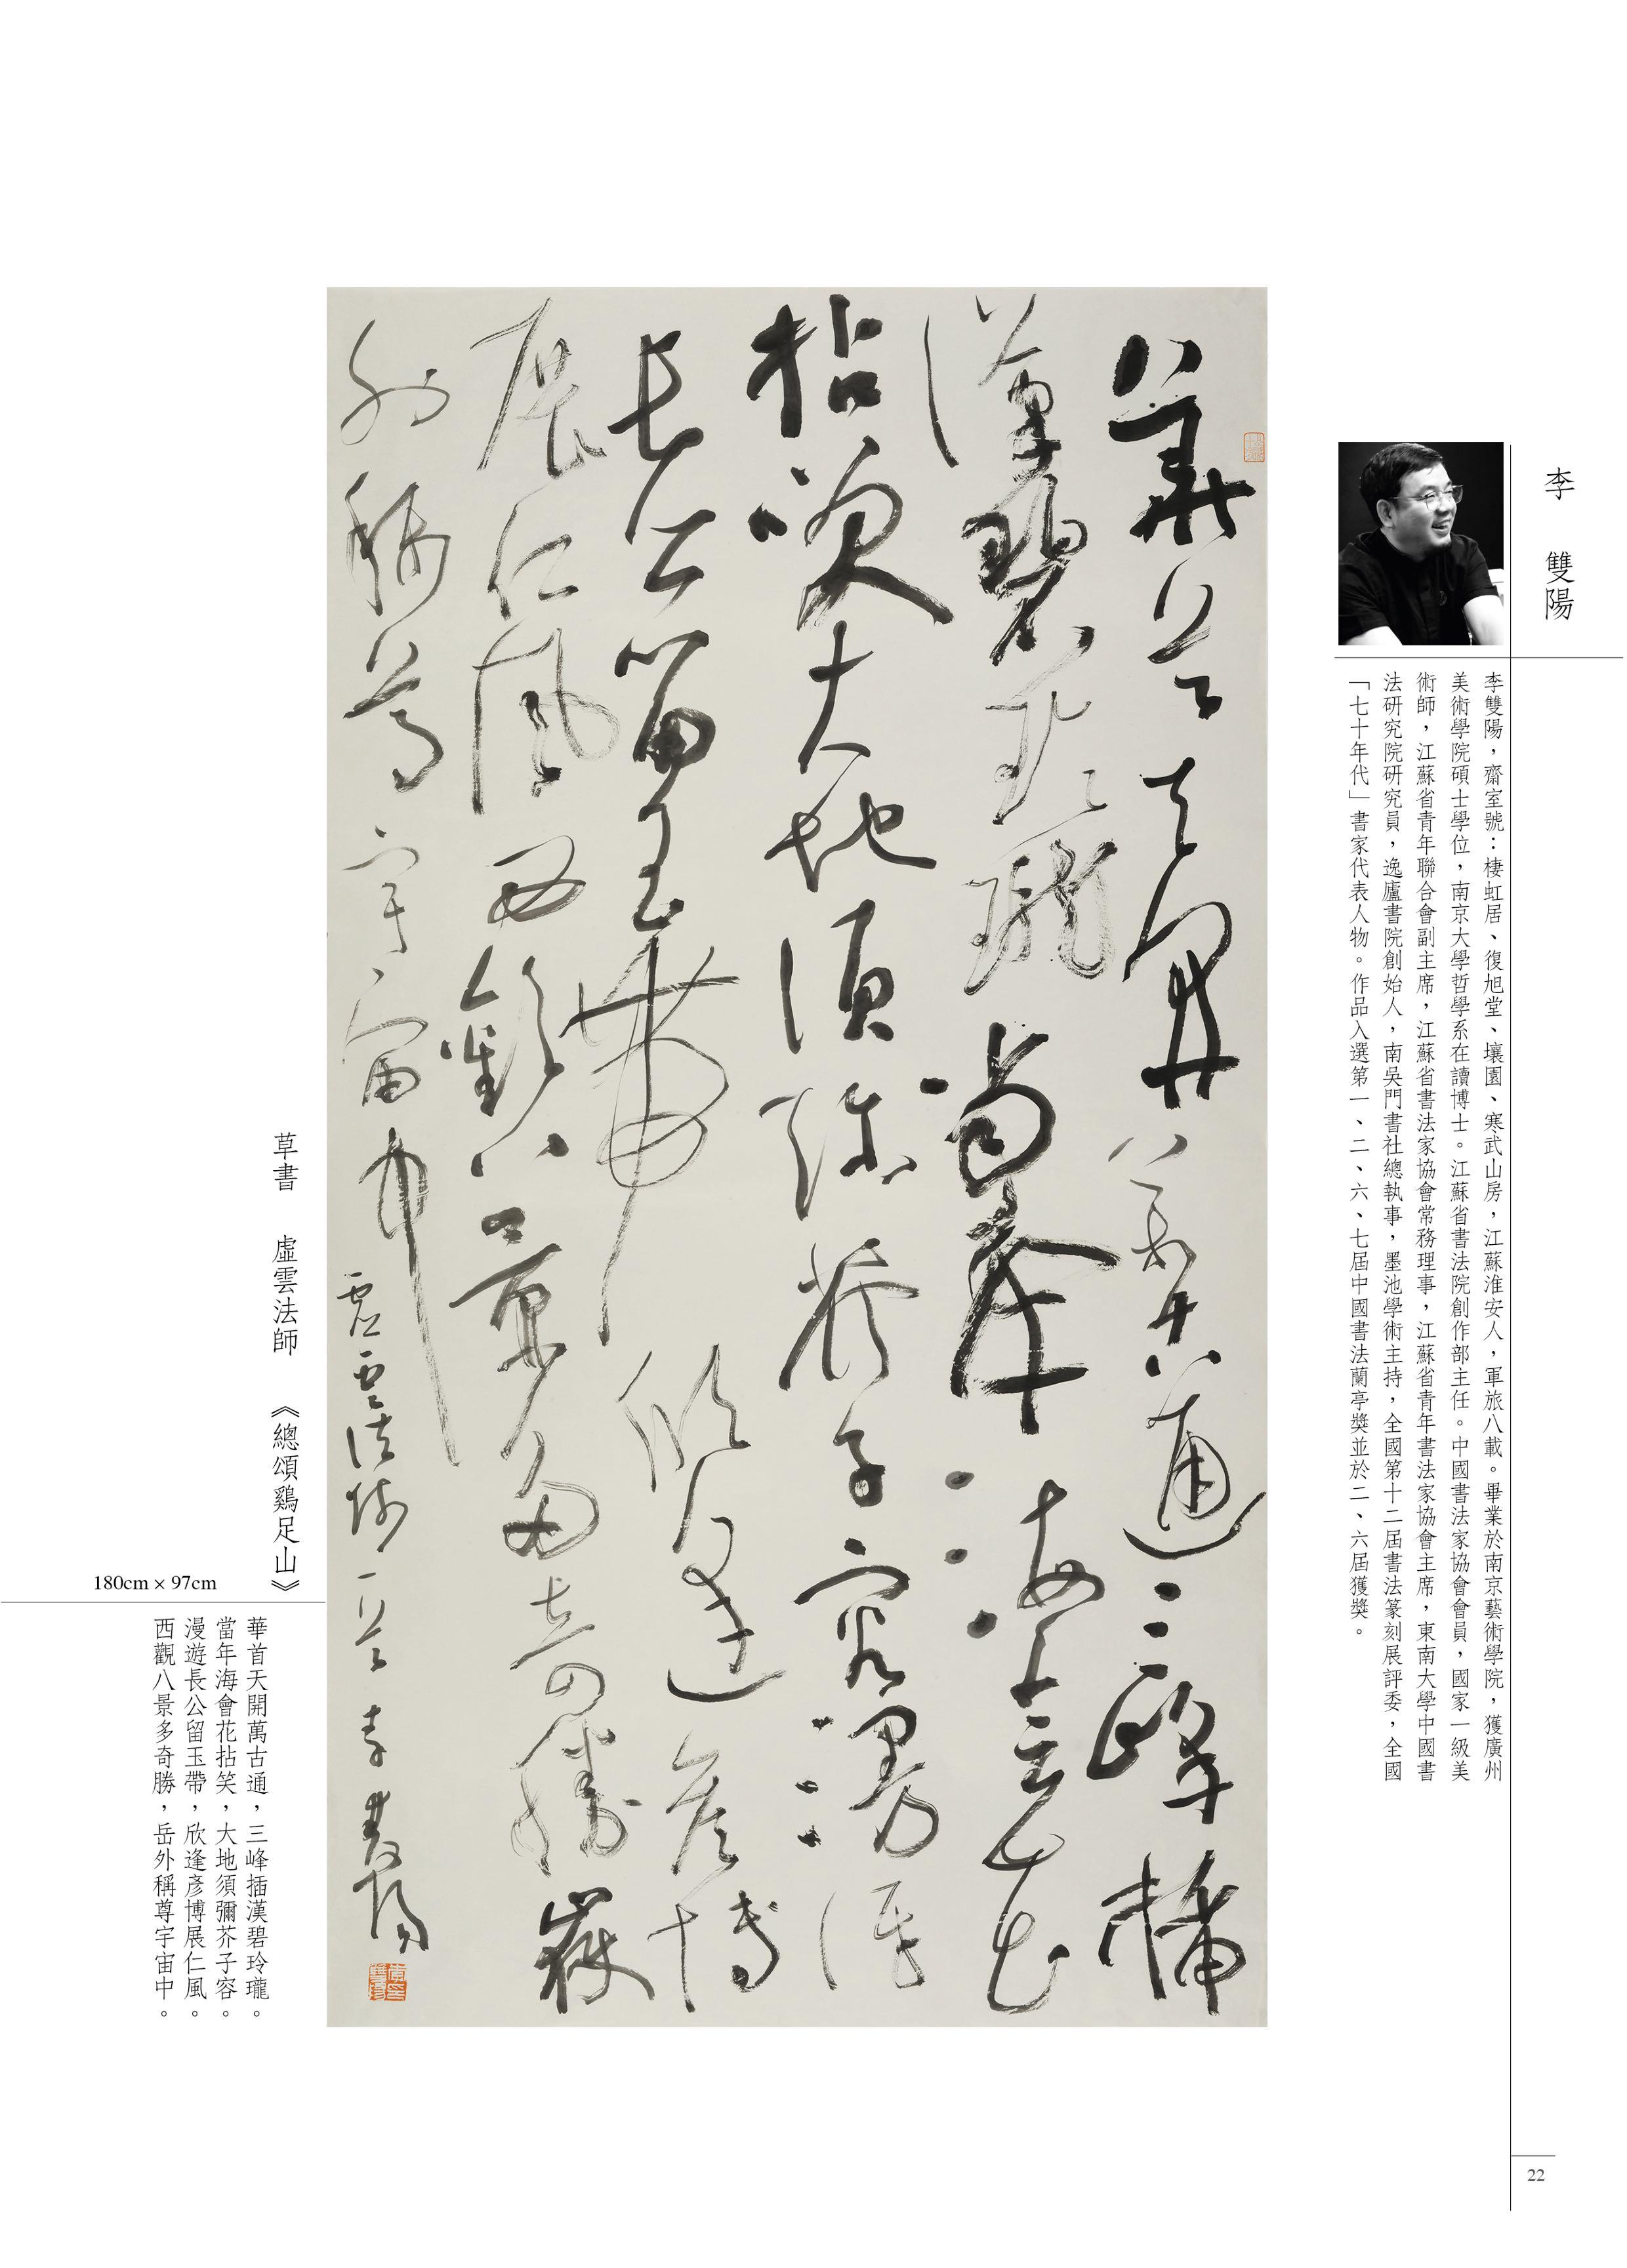 李雙陽
李雙陽，齋室號：棲虹居、復旭堂、壤園、寒武山房，江蘇淮安人，軍旅八載。畢業於南京藝術學院，獲廣州
美術學院碩士學位，南京大學哲學系在讀博士。江蘇省書法院創作部主任。中國書法家協會會員，國家一級美
術師，江蘇省青年聯合會副主席，江蘇省書法家協會常務理事，江蘇省青年書法家協會主席，東南大學中國書
法研究院研究員，逸廬書院創始人，南吳門書社總執事，墨池學術主持，全國第十二屆書法篆刻展評委，全國
「七十年代」書家代表人物。作品入選第一、二、六、七屆中國書法蘭亭獎並於二、六屆獲獎。
華首天開萬古通三峰插
漢碧玲瓏當年海會花
拈笑大地須彌芥子容漫遊
長公留玉帶欣逢彥博
展仁風西觀八景多奇勝嶽
外稱尊宇宙中虛雲法師一首李雙陽
草書 虛雲法師 《總頌鷄足山》
180cm × 97cm
華首天開萬古通，三峰插漢碧玲瓏。
當年海會花拈笑，大地須彌芥子容。
漫遊長公留玉帶，欣逢彥博展仁風。
西觀八景多奇勝，岳外稱尊宇宙中。
22